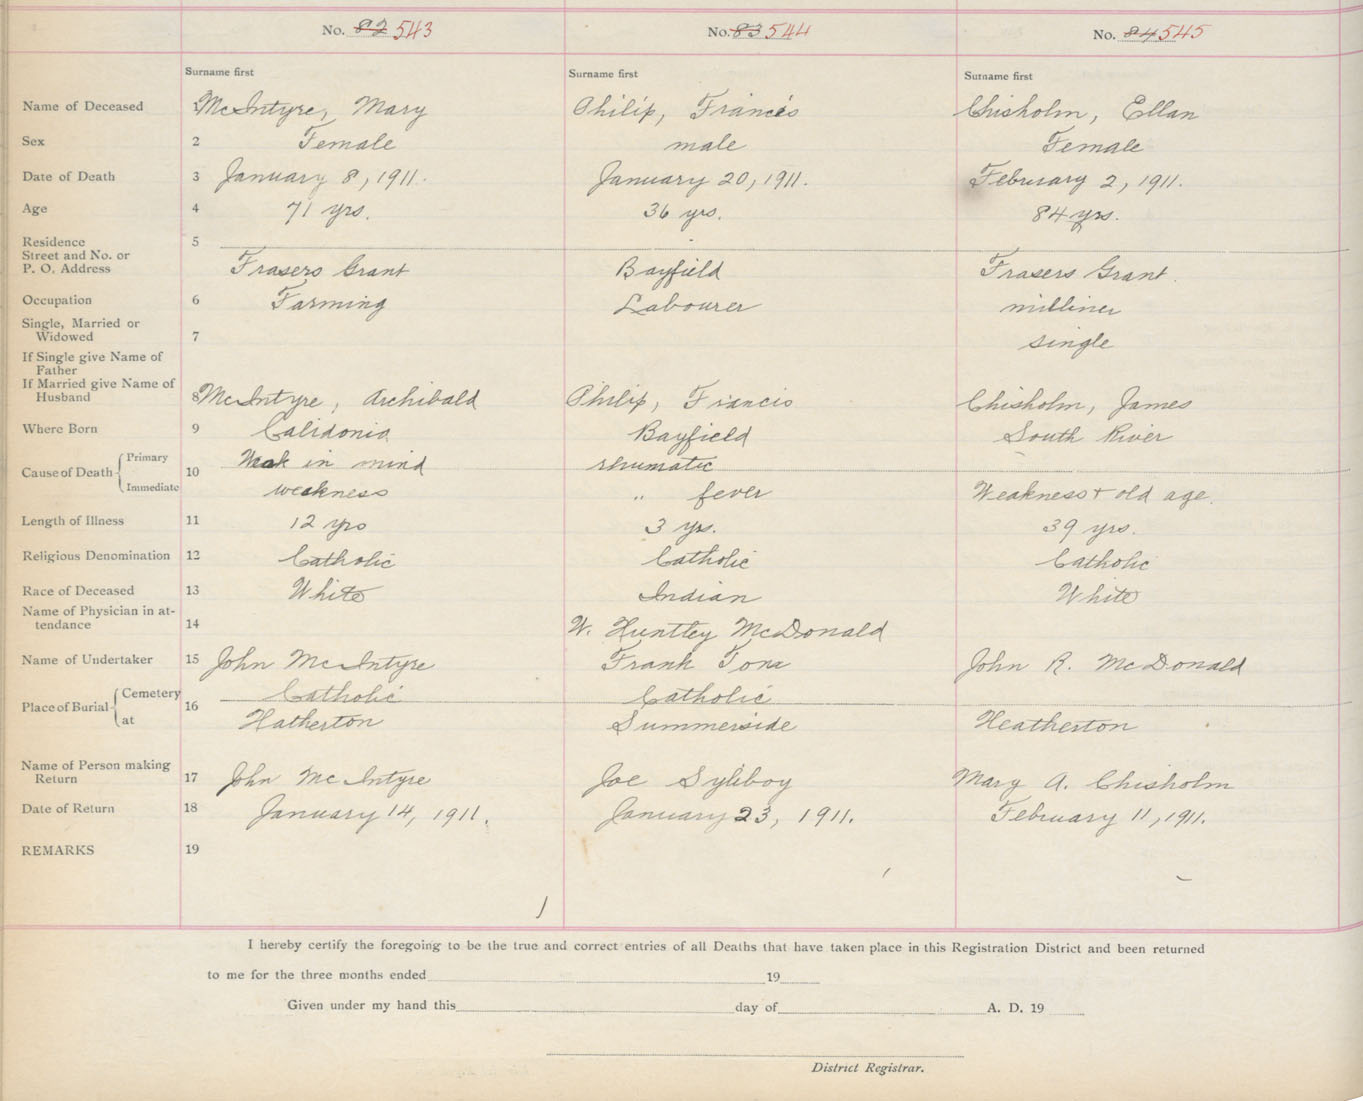 No. 82 543 No. 83 544 No. 84 545
Surname first Surname first Surname first
Name of Deceased 1 McIntyre, Mary Philip, Francis Chisholm, Ellan
Sex 2 Female male Female
Date of Death 3 January 8, 1911. January 20, 1911. February 2, 1911.
Age 4 71 yrs. 36 yrs. 84 yrs.
Residence 5
Street and No. or
P. O. Address Frasers Grant Bayfield Frasers Grant
Occupation 6 Farming Labourer milliner
Single, Married or
Widowed 7 single
If Single give Name of
Father
If Married give Name of
Husband 8 McIntyre, Archibald Philip, Francis Chisholm, James
Where Born 9 Calidonia Bayfield South River
Cause of Death 10 Primary Weak in mind rhumatic
Immediate weakness " fever Weakness + old age.
Length of Illness 11 12 yrs 3 yrs. 39 yrs.
Religious Denomination 12 Catholic Catholic Catholic
Race of Deceased 13 White Indian White
Name of Physician in at-
tendance 14 W. Huntley McDonald
Name of Undertaker 15 John McIntyre Frank John R. McDonald
Place of Burial 16 Cemetery Catholic Catholic
at Hatherton Summerside Heatherton
Name of Person making
Return 17 John McIntyre Joe Syliboy Mary A. Chisholm
Date of Return 18 January 14, 1911. January 23, 1911. February 11, 1911.
REMARKS 19
I hereby certify the foregoing to be the true and correct entries of all Deaths that have taken place in this Registration District and been returned
to me for the three months ended 19
Given under my hand this day of A. D. 19
District Registrar.